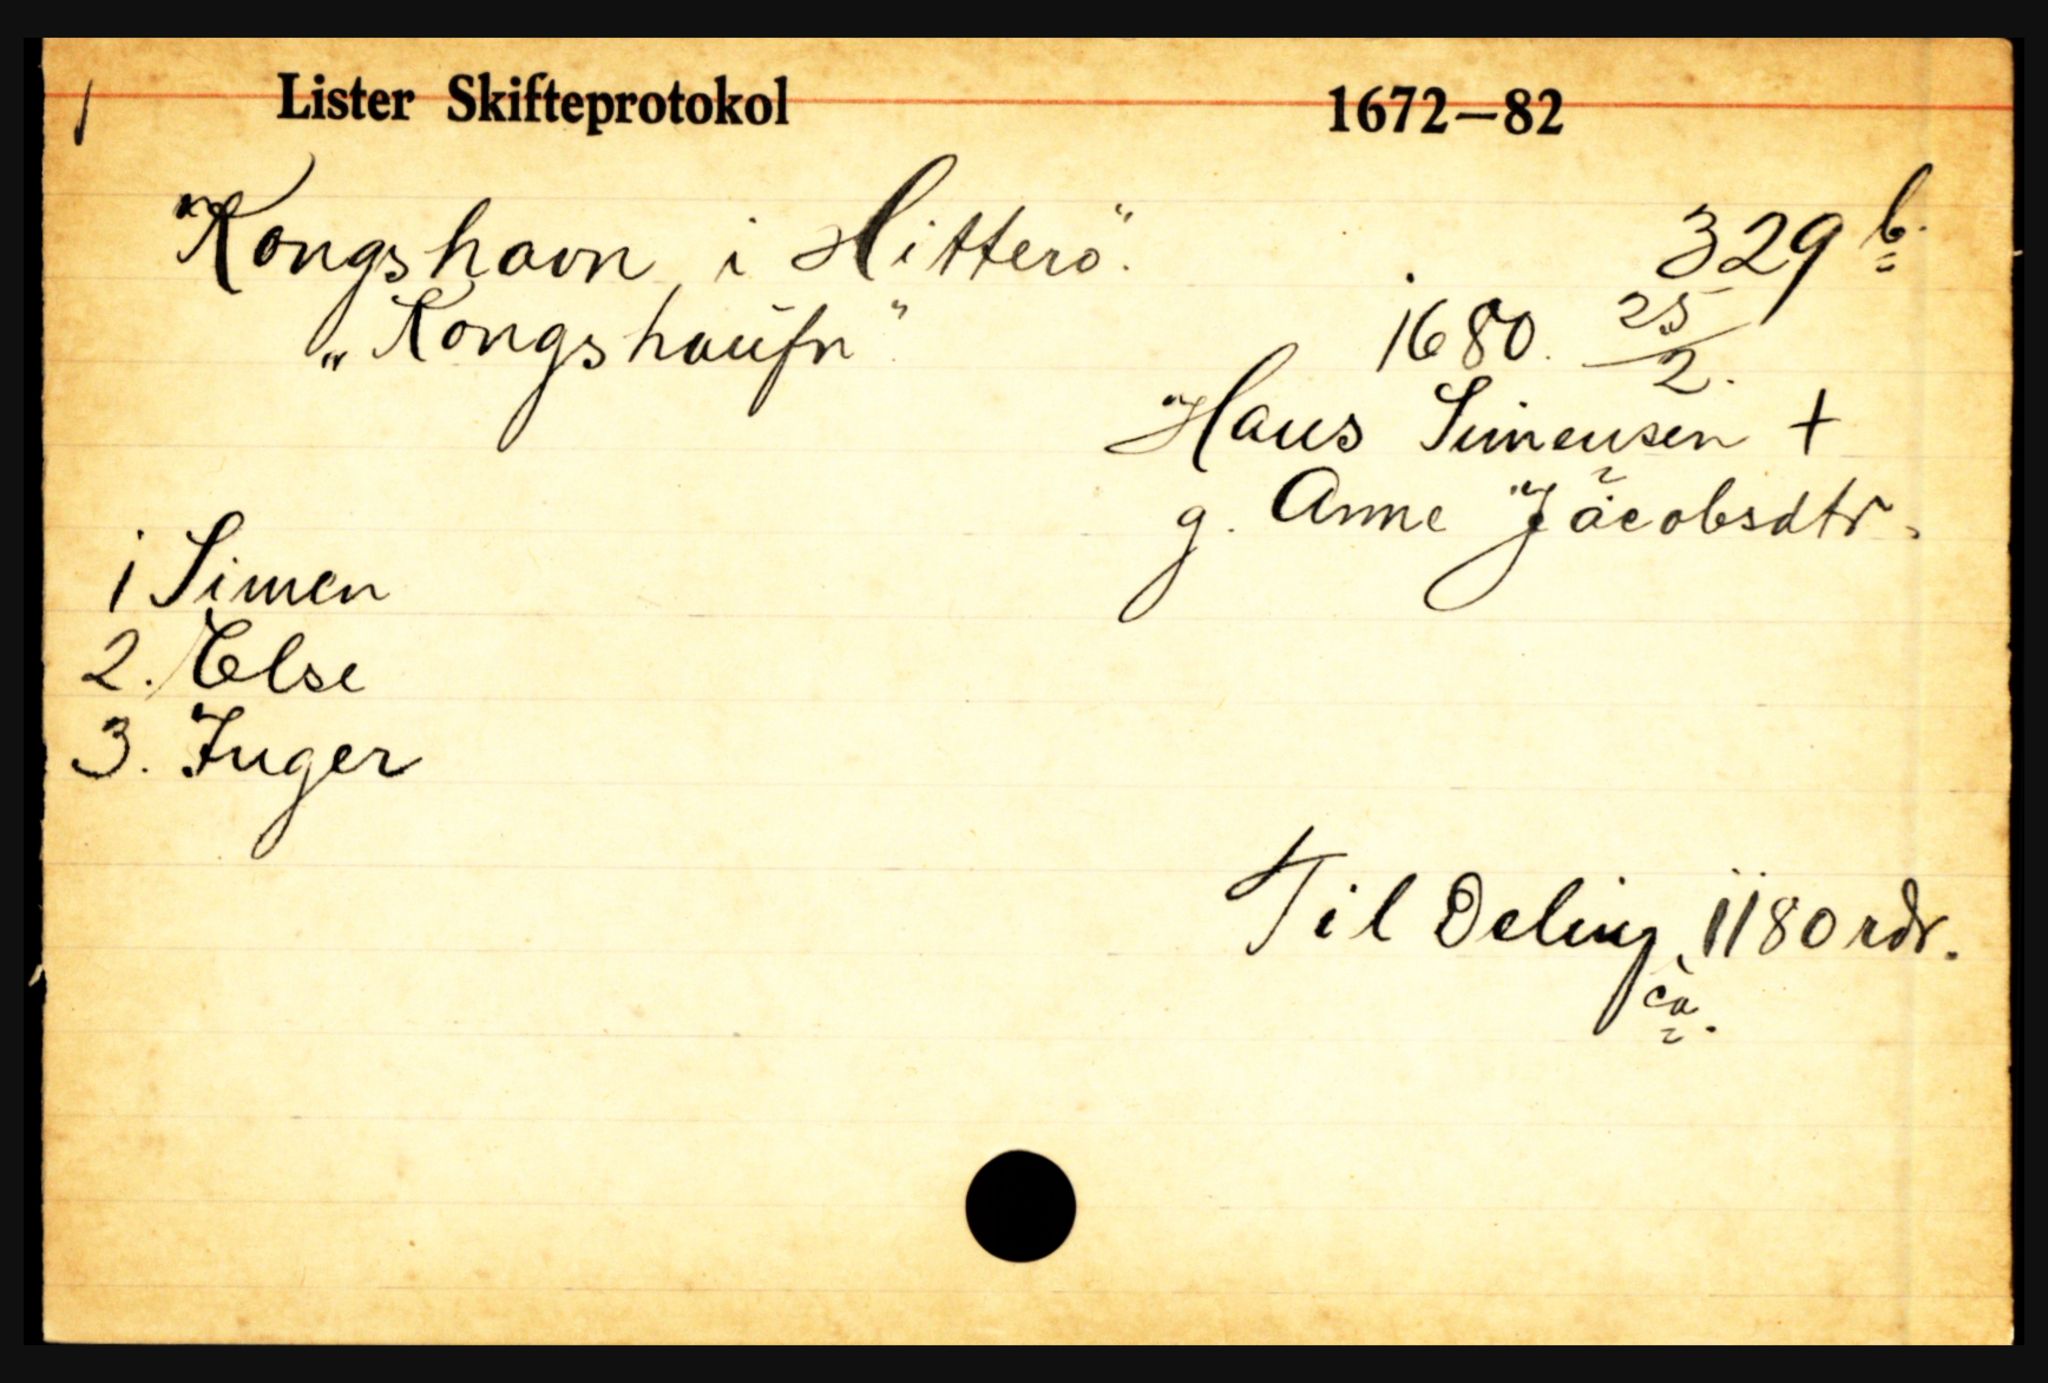 1 Lister Skifteprotokol 1672—82
Kongshavn i Hitterö. 329 b.
„Kongshaüfn" 1680. 25/2.
Hans Simensen +
g. Anne Jacobsdtr.
1 Simen
2. Else
3. Inger
Til Deling 1180 rdr.
ca.